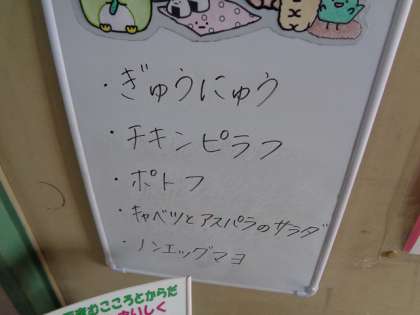 ・ぎゅうにゅう
・チキンピラフ
・ポトフ
・キャベツとアスパラのサラダ
・ノンエッグマヨ
むこころとからだ
いしく